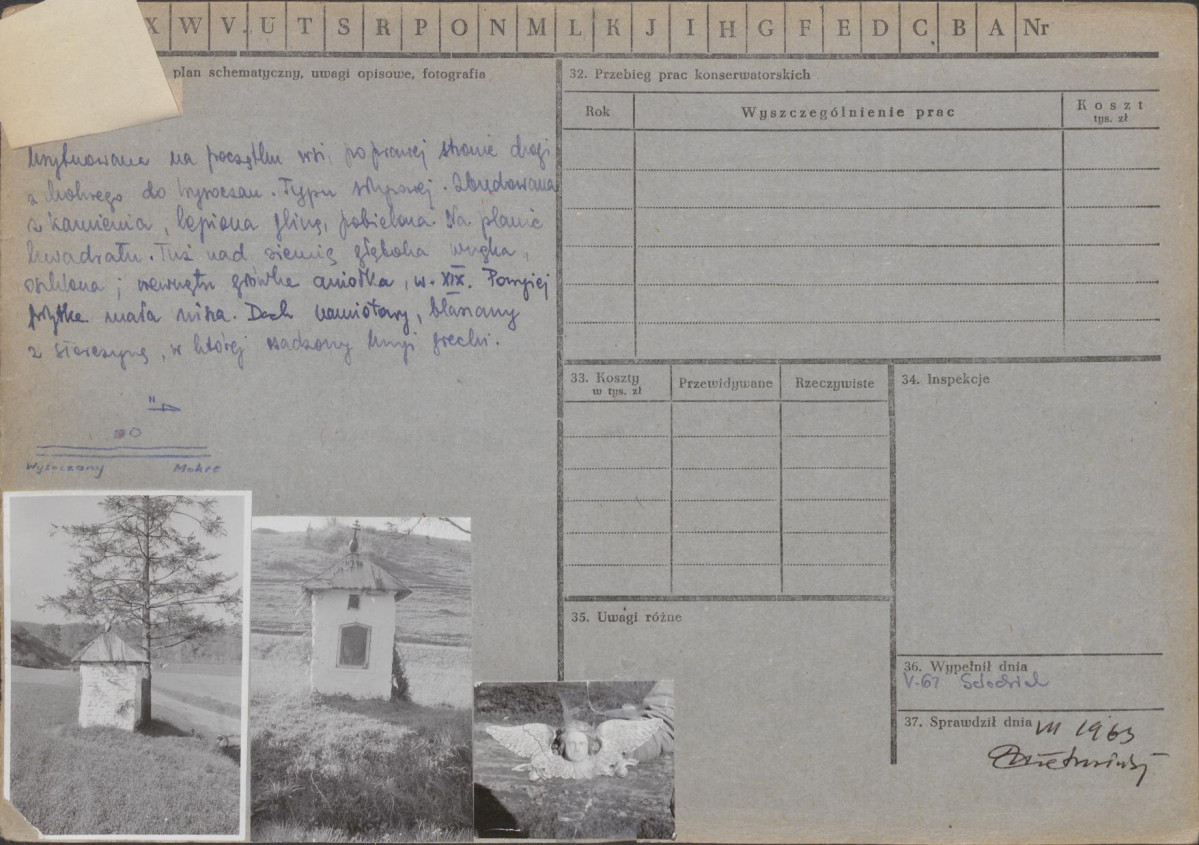 X W V U T S R P O N M L K J I H G F E D C B A Nr
plan schematyczny, uwagi opisowe, fotografia
Usytuowana na początku wsi, po prawej stronie drogi
z Mokrego do Wysoczan. Typu słupowej. Zbudowana
z kamienia, lepiona gliną, pobielona. Na planie
kwadratu. Tuż nad ziemią głęboka wnęka,
oszklona; wewnątrz główka aniołka, w. XIX. Powyżej
płytka mała nisza. Dach namiotowy, blaszany
z sterczyną, w której osadzony krzyż grecki.
N
Wysoczany Mokre
32. Przebieg prac konserwatorskich
Rok Wyszczególnienie prac Koszt
tys. zł
33. Koszty
w tys. zł
Przewidywane Rzeczywiste
34. Inspekcje
35. Uwagi różne
36. Wypełnił dnia
V-61
37. Sprawdził dnia
VII 1963